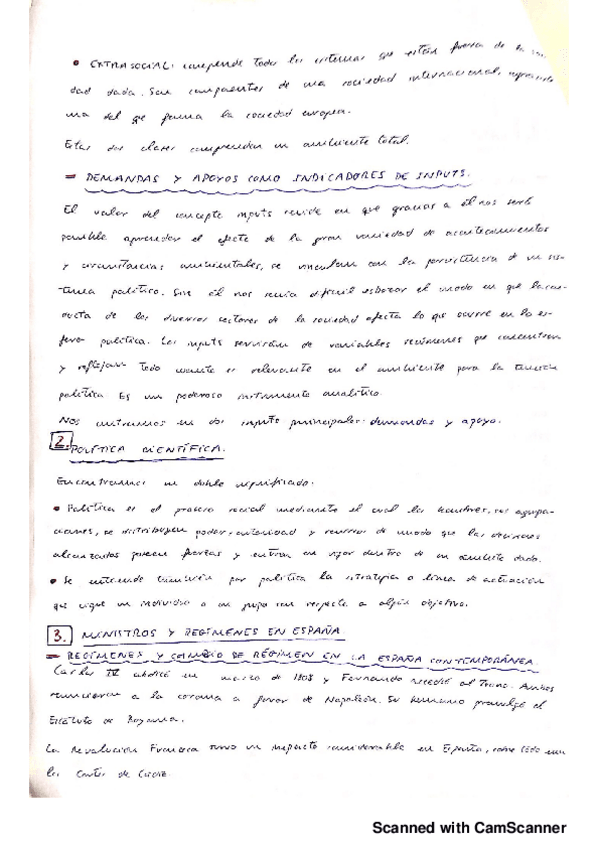 • EXTRASOCIAL: comprende todos los sistemas que están fuera de la so-
dad dada. Son componentes de una sociedad internacional,
una del que forma la sociedad europea.
Estas dos clases comprenden un ambiente total.
= DEMANDAS Y APOYOS COMO INDICADORES DE INPUTS.
El valor del concepto inputs reside en que gracias a él nos será
posible aprender el efecto de la gran variedad de acontecimientos
y circunstancias ambientales, se vinculan con la persistencia de un sis-
tema político. Sin él nos sería difícil esbozar el modo en que la con-
ducta de los diversos sectores de la sociedad afecta lo que ocurre en la es-
fera política. Los inputs servirán de variables resúmenes que concentran
y reflejan todo cuanto es relevante en el ambiente para la tensión
política. Es un poderoso instrumento analítico.
Nos centramos en dos inputs principales: demandas y apoyo.
2. POLÍTICA CIENTÍFICA.
Encontramos un doble significado.
• Política es el proceso social mediante el cual los hombres, sus agrupa-
ciones, se distribuyen poder, autoridad y recursos de modo que las decisiones
alcanzadas parecen fuertes y entran en vigor dentro de un ámbito dado.
• Se entiende también por política la estrategia o línea de actuación
que sigue un individuo o un grupo con respecto a algún objetivo.
3. MINISTROS Y REGÍMENES EN ESPAÑA
= REGÍMENES Y CAMBIO DE RÉGIMEN EN LA ESPAÑA CONTEMPORÁNEA.
Carlos IV abdicó en marzo de 1808 y Fernando accedió al Trono. Ambos
renunciaron a la corona a favor de Napoleón. Su hermano promulgó el
Estatuto de Bayona.
La Revolución Francesa tuvo un impacto considerable en España, sobre todo en
las Cortes de Cádiz.
Scanned with CamScanner